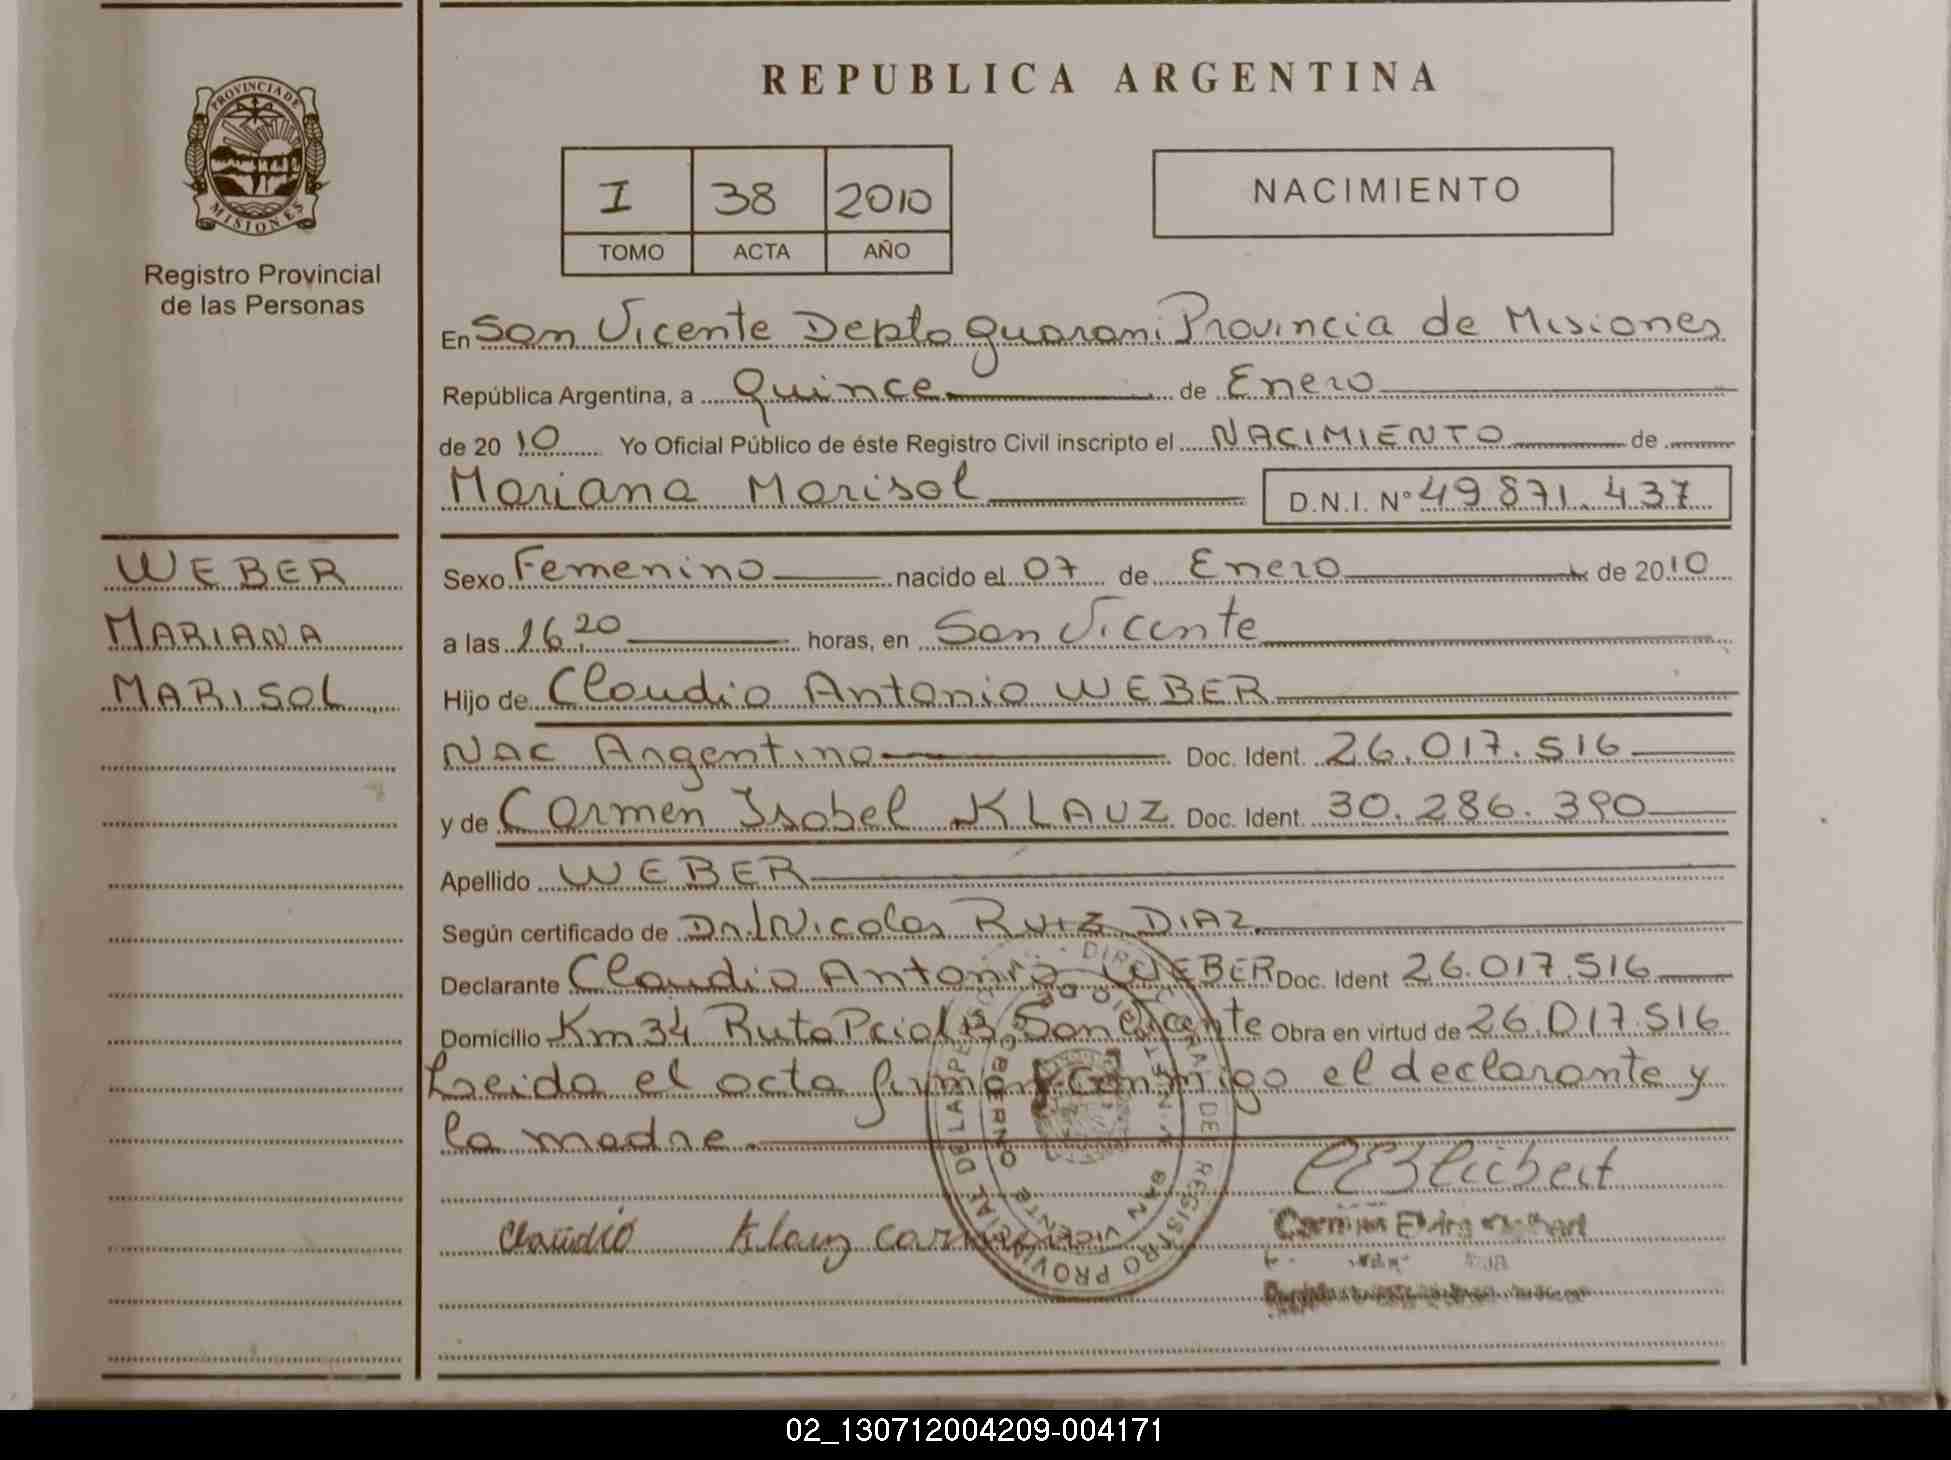 REPUBLICA ARGENTINA
PROVINCIA DE
MISIONES
Registro Provincial
de las Personas
I 38 2010
TOMO ACTA AÑO
NACIMIENTO
En San Vicente Depto Guarani Provincia de Misiones
República Argentina, a Quince de Enero
de 20 10 Yo Oficial Público de éste Registro Civil inscripto el NACIMIENTO de
Mariana Marisol D.N.I. Nº 49871.437
WEBER
MARIANA
MARISOL
Sexo Femenino nacido el 07 de Enero de 20 10
a las 16,20 horas, en San Vicente
Hijo de Claudio Antonio WEBER
Nac Argentino Doc. Ident. 26.017.516
y de Carmen Isabel KLAUZ Doc. Ident. 30.286.390
Apellido WEBER
Según certificado de Dr. Nicolas RUIZ DIAZ
Declarante Claudio Antonio WEBER Doc. Ident 26.017.516
Domicilio Km34 Ruta Pcial 13 San Vicente Obra en virtud de 26.017.516
Leida el acta firman conmigo el declarante y
la madre.
Claudio Klauz Carmen
REGISTRO PROVINCIAL DE LAS PERSONAS
GOBIERNO
SAN VICENTE
02_130712004209-004171